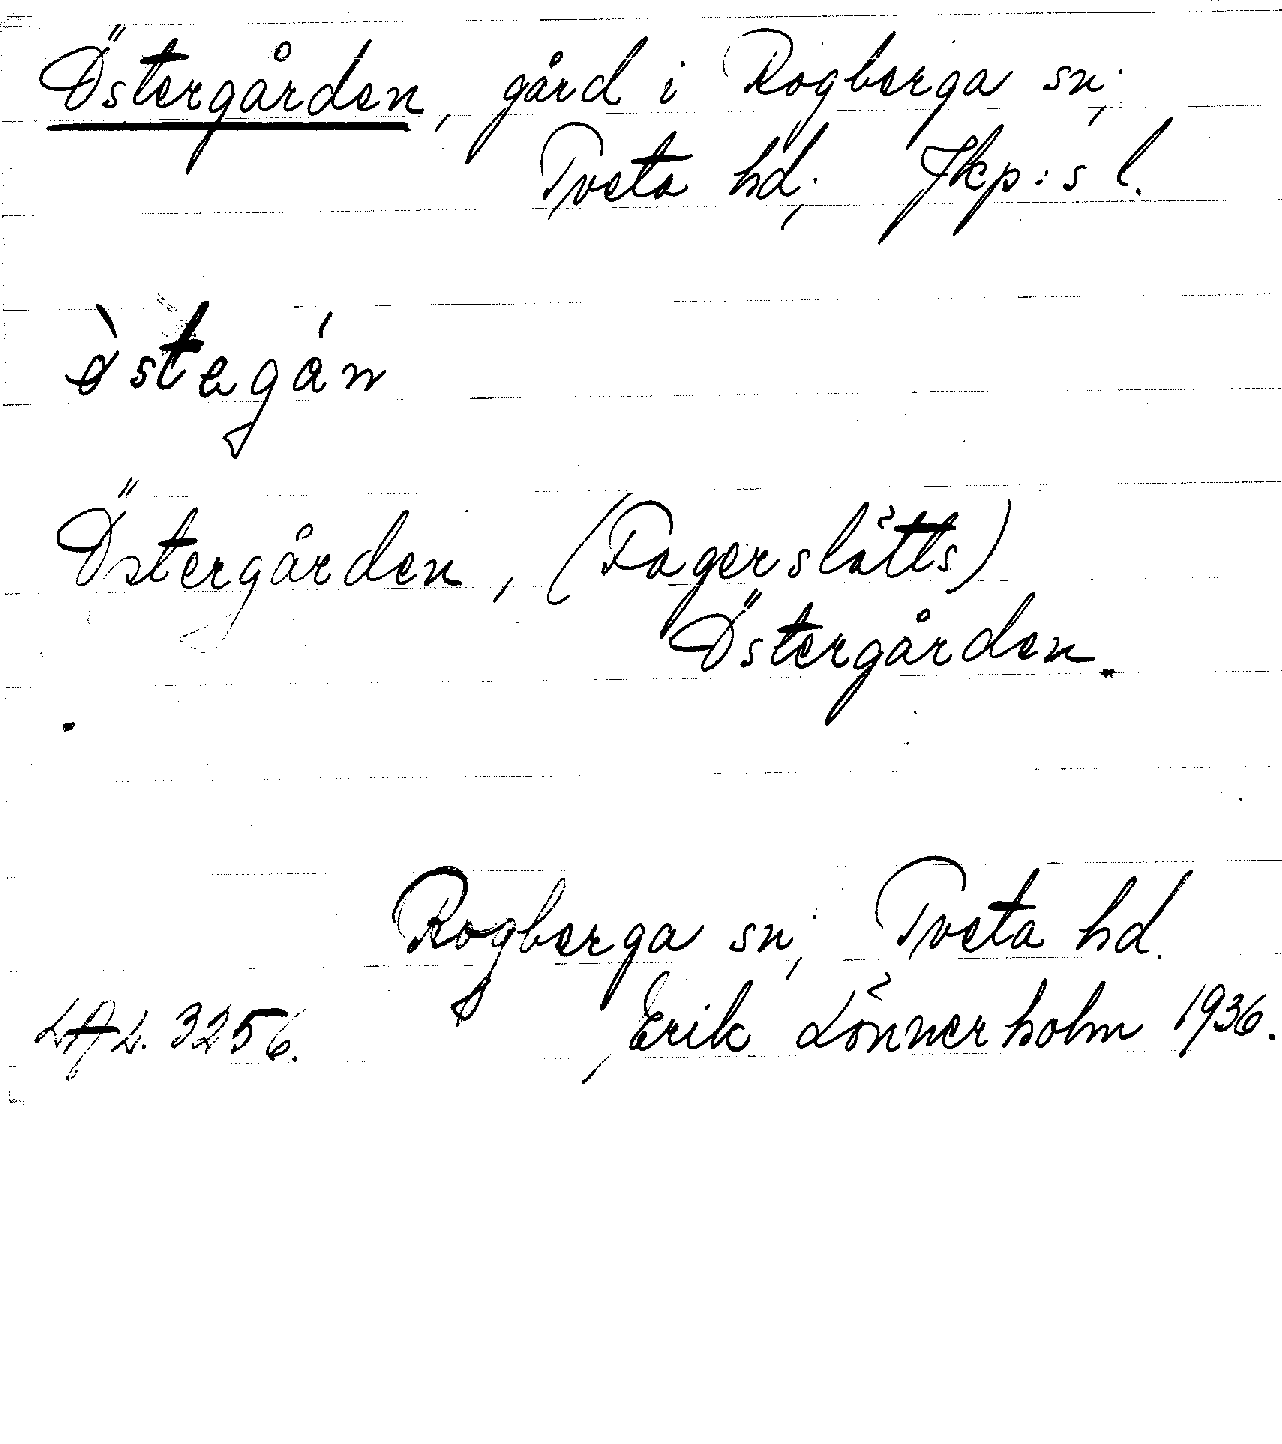 Östergården, gård i Rogberga sn,
Tveta hd, Jkp:s l.
östegán
Östergården, (Fagerslätts)
Östergården.
Rogberga sn, Tveta hd.
LAL. 3256. Erik Lönnerholm 1936.